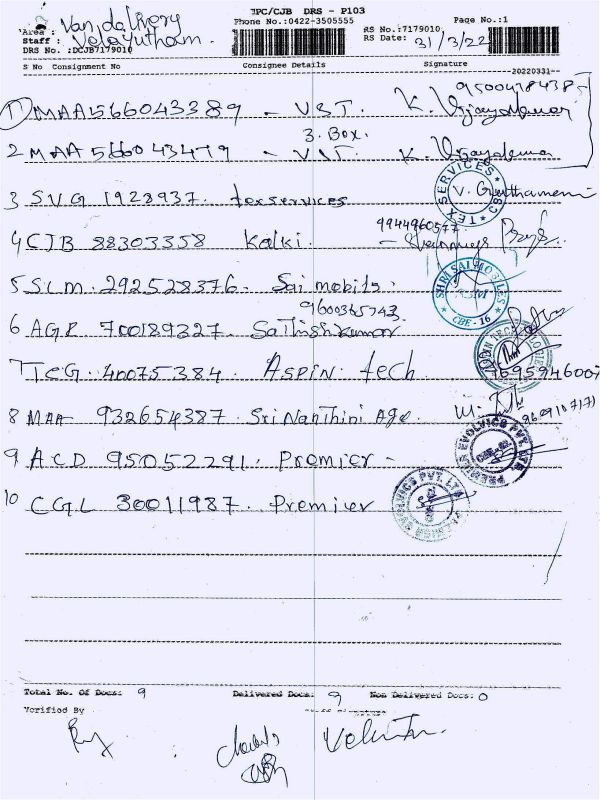 JPC/CJB DRS - P103
Area : Van delivery
Phone No.:0422-3505555
Page No.:1
Staff : Velayutham.
RS No.:7179010
DRS No. :DCJB7179010
RS Date: 31/3/22
S No Consignment No Consignee Details Signature
20220331
1 MAA566043389 - V.S.T. K. Vijayakumar
3. Box.
2 MAA 566043479 - V.S.T. K. Vijayakumar
3 SVG 1928937. texservices V. Gowthamani
TEX SERVICES CBE
9944960577
4 CJB 88303358 Kalki.
5 SLM. 292528376. Sai mobils.
SHRI SAI MOBILES
CBE - 16
9600365743
6 AGR 700189327. Sathishkumar
7 TCG. 40075384. ASPIN. tech
7695946007
8 MAA 932654387. Sri Nanthini Age.
9 ACD 95052291. Premier -
PREMIER EVOLVICS PVT. LTD
10 CGL 30011987. Premier
PREMIER EVOLVICS PVT. LTD
Total No. Of Docs: 9 Delivered Docs: 9 Non Delivered Docs: 0
Verified By